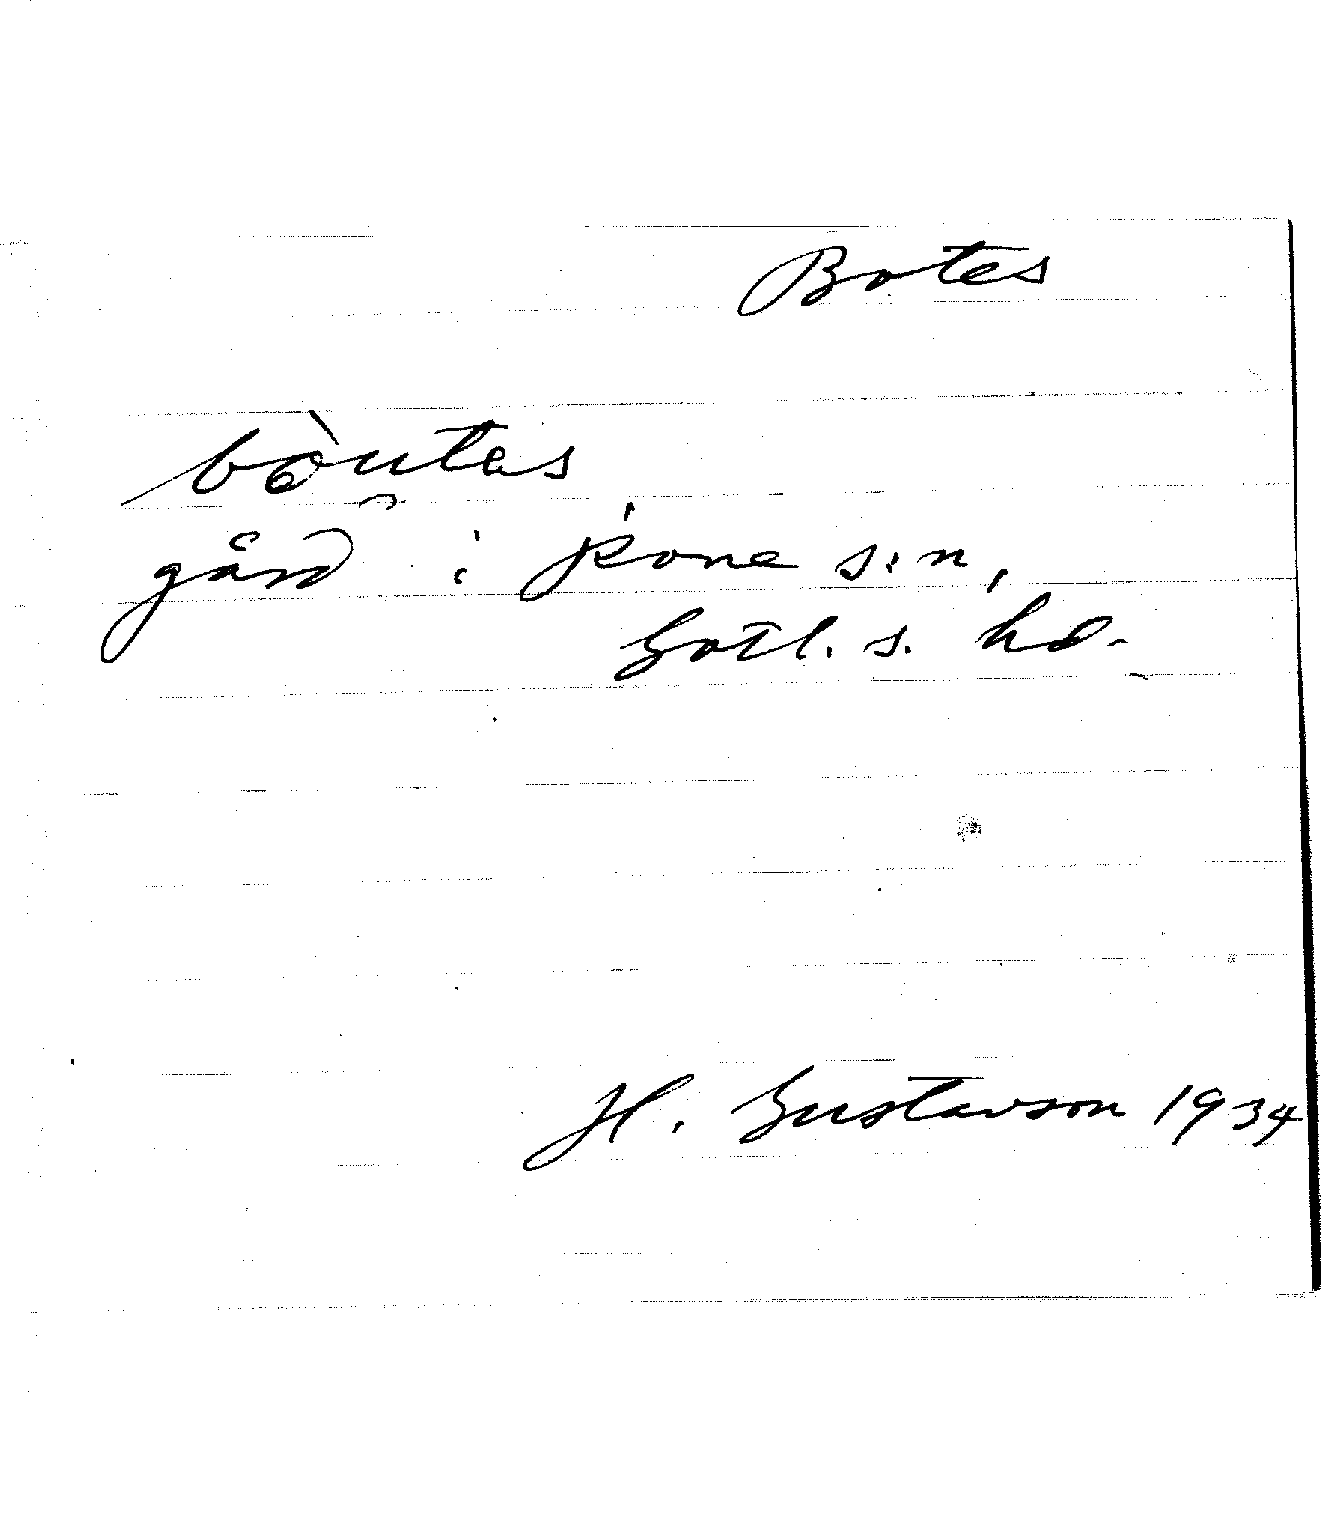 Botes
bòu̯tas
gård i Rone s:n,
Gotl. s. hd.
H. Gustavson 1934